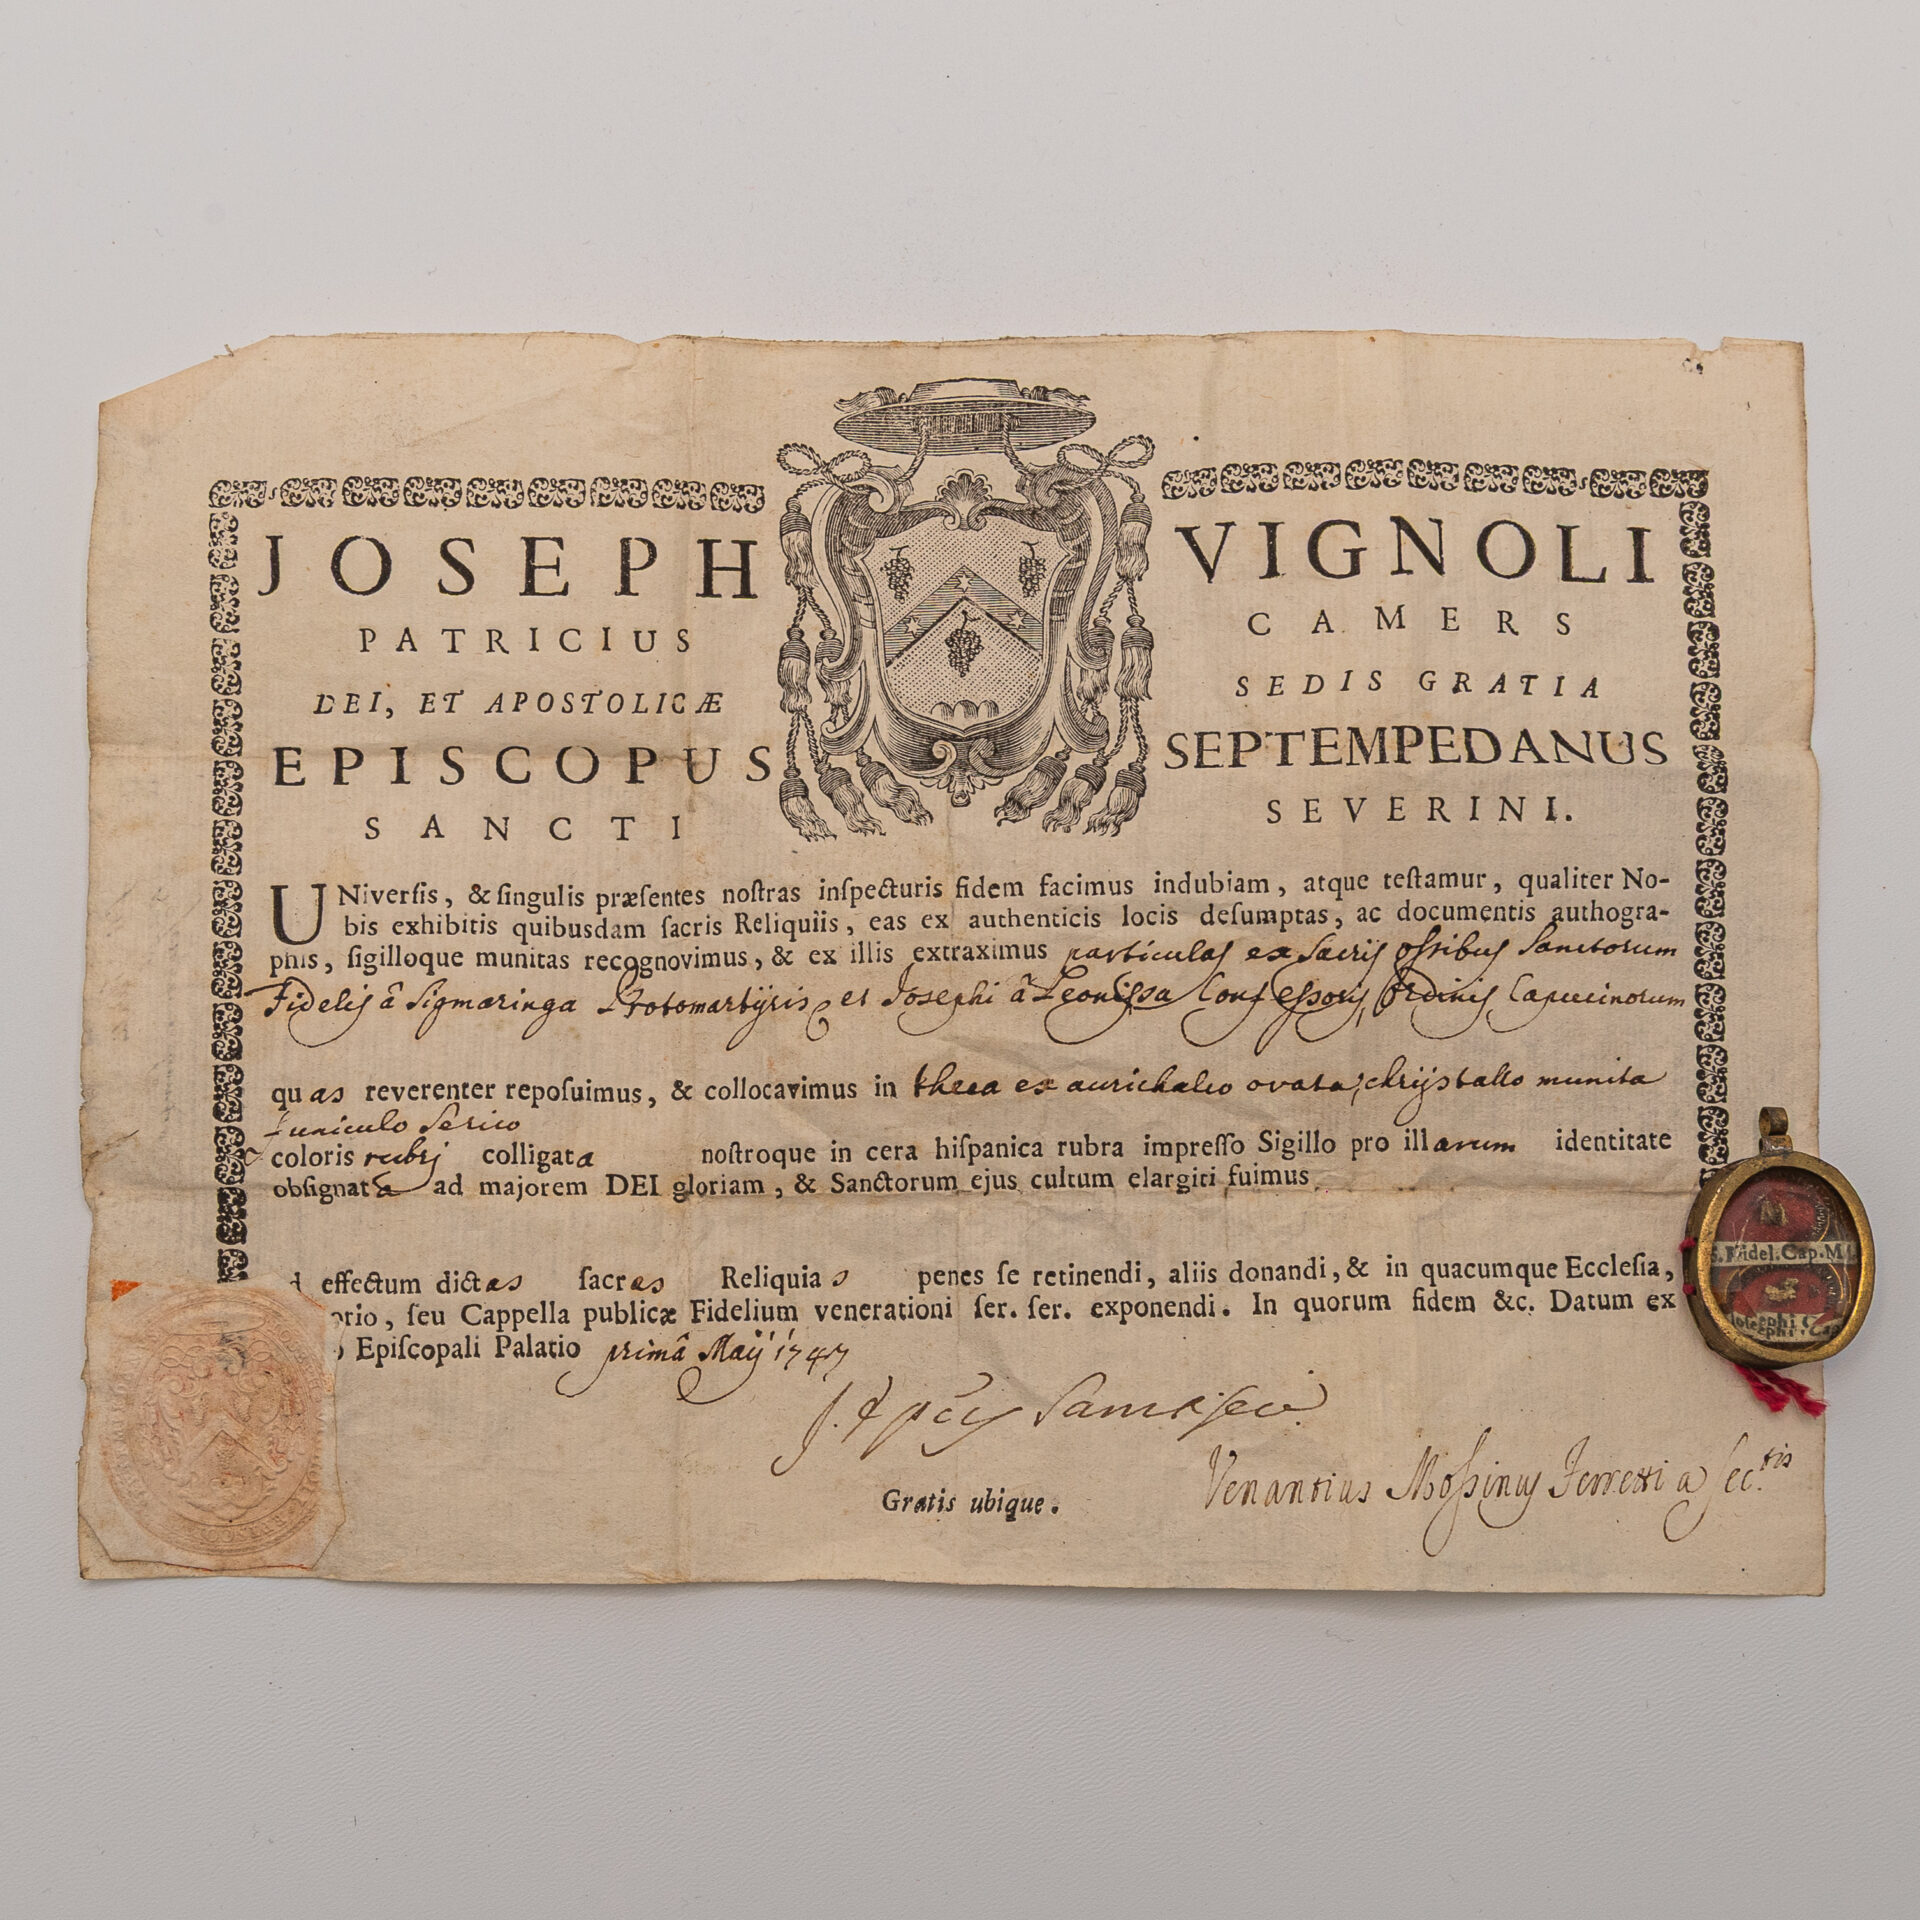 JOSEPH VIGNOLI
PATRICIUS CAMERS
DEI, ET APOSTOLICÆ SEDIS GRATIA
EPISCOPUS SEPTEMPEDANUS
SANCTI SEVERINI.
UNiverſis, & ſingulis præſentes noſtras inſpecturis fidem facimus indubiam, atque teſtamur, qualiter No-
bis exhibitis quibusdam ſacris Reliquiis, eas ex authenticis locis deſumptas, ac documentis authogra-
phis, ſigilloque munitas recognovimus, & ex illis extraximus particulas ex Sacris ossibus Sanctorum
Fidelis â Sigmaringa Protomartyris et Josephi â Leonissa Confessoris, Ordinis Capucinorum
quas reverenter repoſuimus, & collocavimus in theca ex aurichalco ovata, chrystallo munita
funiculo Serico
coloris rubri colligata noſtroque in cera hiſpanica rubra impreſſo Sigillo pro illarum identitate
obſignata ad majorem DEI gloriam, & Sanctorum ejus cultum elargiti fuimus
effectum dictas ſacras Reliquias penes ſe retinendi, aliis donandi, & in quacumque Eccleſia,
orio, ſeu Cappella publicæ Fidelium venerationi ſer. ſer. exponendi. In quorum fidem &c. Datum ex
Epiſcopali Palatio primâ Maij 1747
Gratis ubique.
Venantius Mossinus Ferretti a Sec.tis
S. Fidel. Cap. M
Josephi